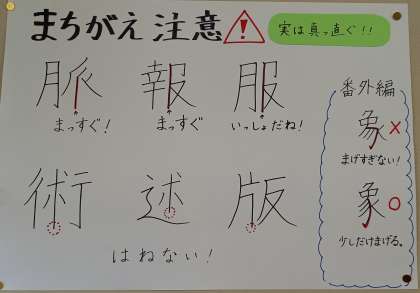 まちがえ注意
実は真っ直ぐ!!
脈 報 服
まっすぐ! まっすぐ いっしょだね!
術 述 版
はねない!
番外編
象 ×
まげすぎない!
象 ○
少しだけまげる。